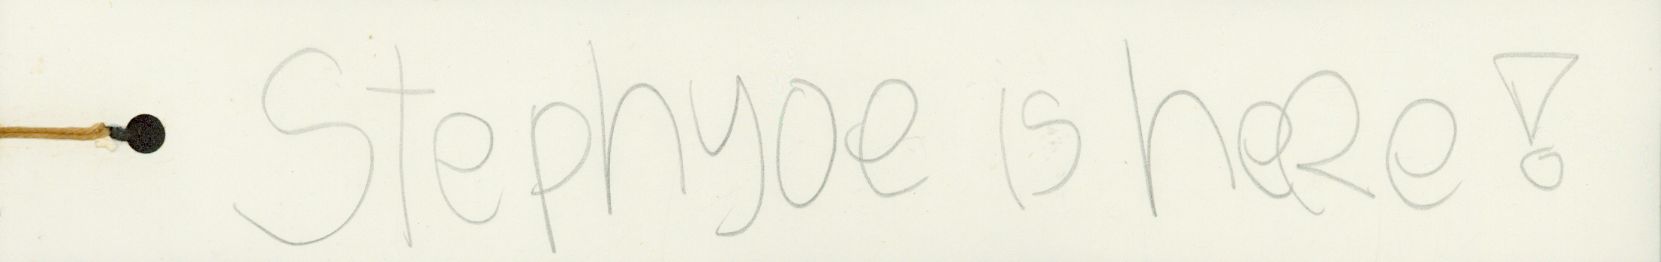 Stephyoe is heRe!